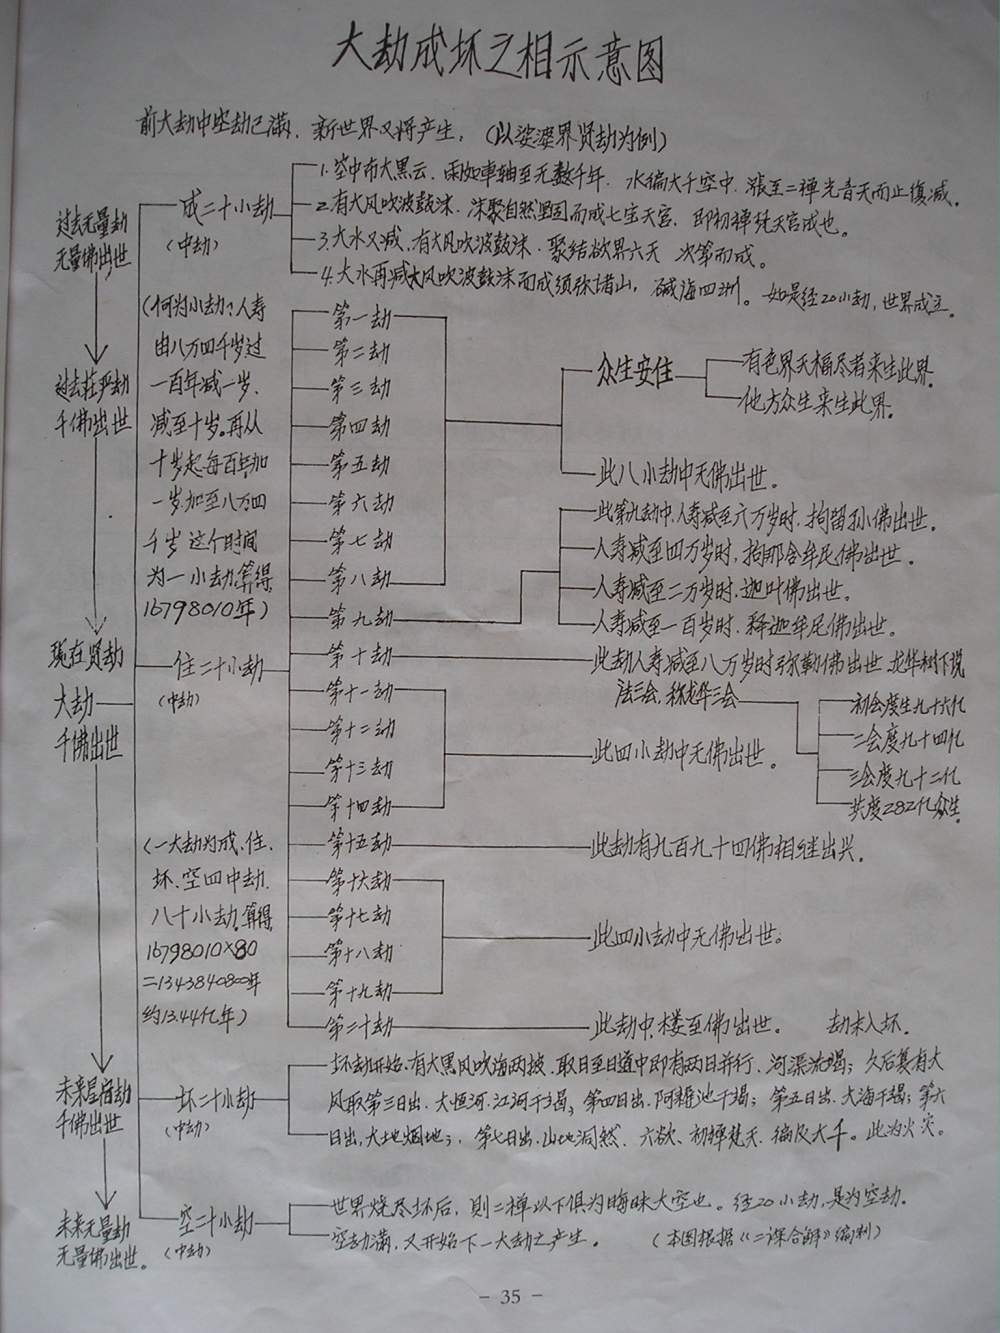 大劫成坏之相示意图
前大劫中空劫已满，新世界又将产生，（以娑婆界贤劫为例）
过去无量劫
无量佛出世
过去莊严劫
千佛出世
现在贤劫
大劫
千佛出世
未来星宿劫
千佛出世
未来无量劫
无量佛出世。
成二十小劫
（中劫）
1.空中布大黑云，雨如車轴至无数千年，水徧大千空中，漲至二禅光音天而止復减。
2.有大风吹波鼓沫，沫聚自然坚固而成七宝天宫，即初禅梵天宫成也。
3.大水又减，有大风吹波鼓沫，聚结欲界六天 次第而成。
4.大水再减大风吹波鼓沫而成须弥诸山，碱海四洲。如是经20小劫，世界成立。
（何为小劫？人寿
由八万四千岁过
一百年减一岁，
减至十岁。再从
十岁起每百年加
一岁加至八万四
千岁 这个时间
为一小劫，算得，
16798010年）
住二十小劫
（中劫）
第一劫
第二劫
第三劫
第四劫
第五劫
第六劫
第七劫
第八劫
第九劫
第十劫
第十一劫
第十二劫
第十三劫
第十四劫
第十五劫
第十六劫
第十七劫
第十八劫
第十九劫
第二十劫
众生安住
有色界天福尽者来生此界.
他方众生来生此界.
此八小劫中无佛出世。
此第九劫中，人寿减至六万岁时，拘留孙佛出世。
人寿减至四万岁时，拘那含牟尼佛出世。
人寿减至二万岁时，迦叶佛出世。
人寿减至一百岁时，释迦牟尼佛出世。
此劫人寿减至八万岁时弥勒佛出世，龙华树下说
法三会，称龙华三会
初会度生九十六亿
二会度九十四亿
三会度九十二亿
共度282亿众生。
此四小劫中无佛出世。
此劫有九百九十四佛相继出兴.
此四小劫中无佛出世。
此劫中，楼至佛出世。 劫末入坏.
（一大劫为成、住、
坏、空四中劫，
八十小劫，算得，
16798010×80
=1343840800年
约13.44亿年）
坏二十小劫
（中劫）
坏劫开始，有大黑风吹海两披，取日至日道中即有两日并行，河渠流竭；久后复有大
风取第三日出，大恒河、江河干竭；第四日出，阿耨池干竭；第五日出，大海干竭；第六
日出，大地烟地；第七日出，山地洞然，六欲、初禅梵天，徧及大千。此为火灾。
空二十小劫
（中劫）
世界烧尽坏后，則二禅以下俱为晦昧大空也。经20小劫，是为空劫.
空劫满，又开始下一大劫之产生。 （本图根据《二课合解》编制）
- 35 -